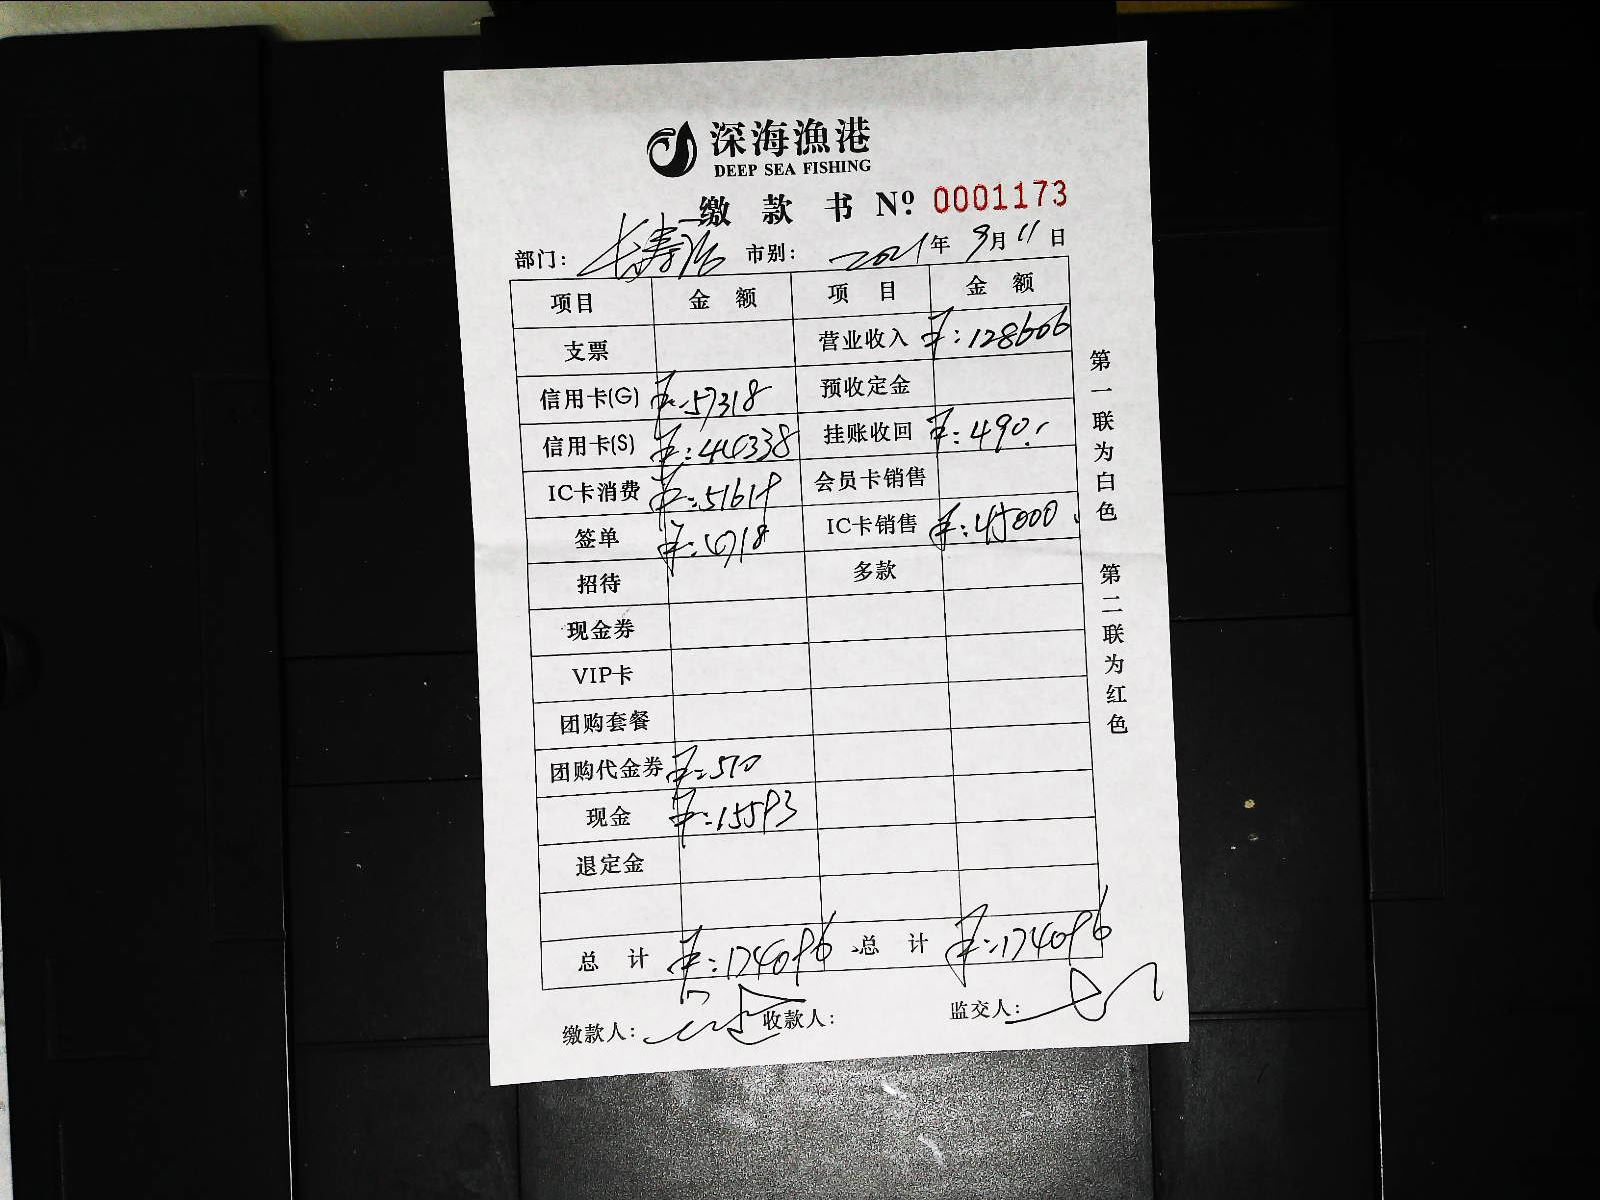 深海漁港
DEEP SEA FISHING
缴款书 Nº 0001173
部门: 长寿路 市别: 2021年 9月 11日
项目 金额 项目 金额
支票 营业收入 ¥:128606
信用卡(G) ¥:57318 预收定金
信用卡(S) ¥:44338 挂账收回 ¥:490.
IC卡消费 ¥:51619 会员卡销售
签单 ¥:4718 IC卡销售 ¥:45000.
招待 多款
现金券
VIP卡
团购套餐
团购代金券 ¥:510
现金 ¥:15593
退定金
总计 ¥:174096 总计 ¥:174096
缴款人: 收款人: 监交人:
第一联为白色 第二联为红色